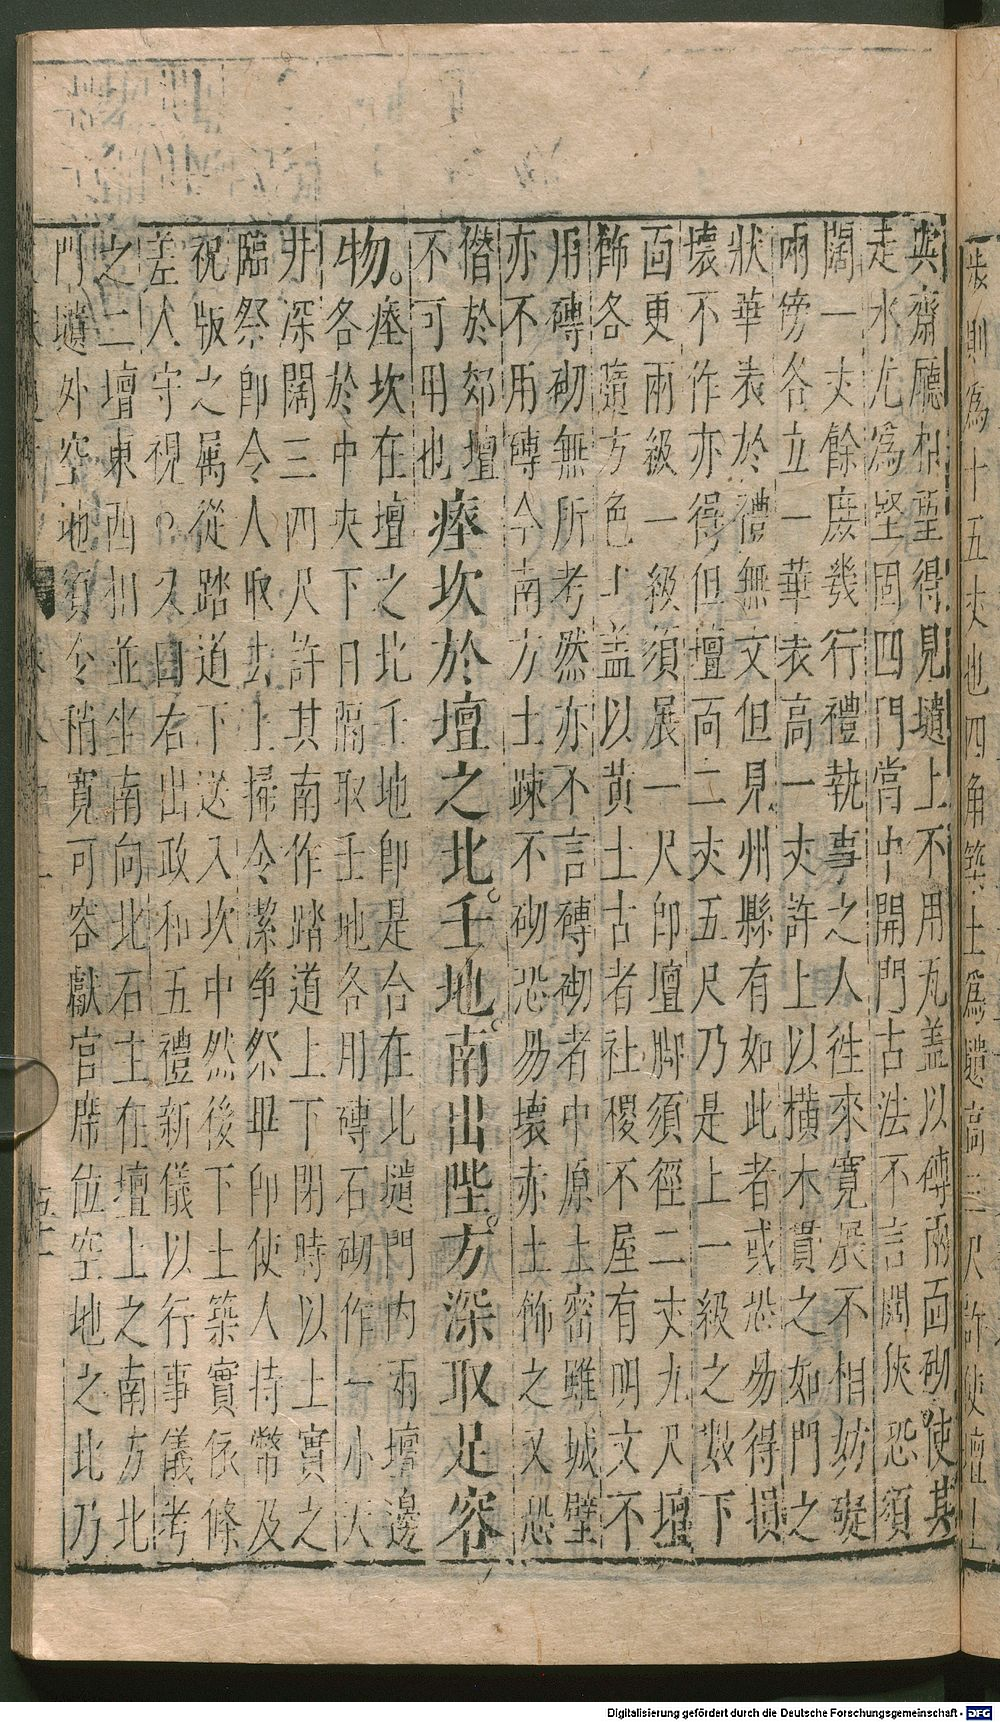 與齋廳相望得見壝上不用瓦蓋以塼兩面砌使其
走水尤爲堅固四門當中開門古法不言闊狹恐須
闊一丈餘庶幾行禮執事之人徃來寛展不相妨礙
兩傍各立一華表高一丈許上以橫木貫之如門之
狀華表於禮無文但見州縣有如此者或恐易得損
壞不作亦得但壇面二丈五尺乃是上一級之數下
面更兩級一級須展一尺卽壇脚須徑二丈九尺壇
飾各隨方色上蓋以黃土古者社稷不屋有明文不
用磚砌無所考然亦不言磚砌者中原土密雖城壁
亦不用磚今南方土踈不砌恐易壞赤土飾之又恐
僭於郊壇
不可用也瘞坎於壇之北壬地南出陛方深取足容
物。瘞坎在壇之北壬地卽是合在北壝門内兩壇邊
各於中央下日隔取壬地各用磚石砌作一小天
井深闊三四尺許其南作踏道上下閉時以土實之
臨祭卽令人取去上掃令潔爭祭畢卽使人持幣及
祝版之属從踏道下送入坎中然後下土築實依條
差人守視。久曰右出政和五禮新儀以行事儀考
之二壇東西相並坐南向北石主在壇上之南方北
門壝外空地須令稍寛可容獻官席位空地之北乃
歩則爲十五丈也四角築土爲壝高三尺許使壇上
Digitalisierung gefördert durch die Deutsche Forschungsgemeinschaft - DFG